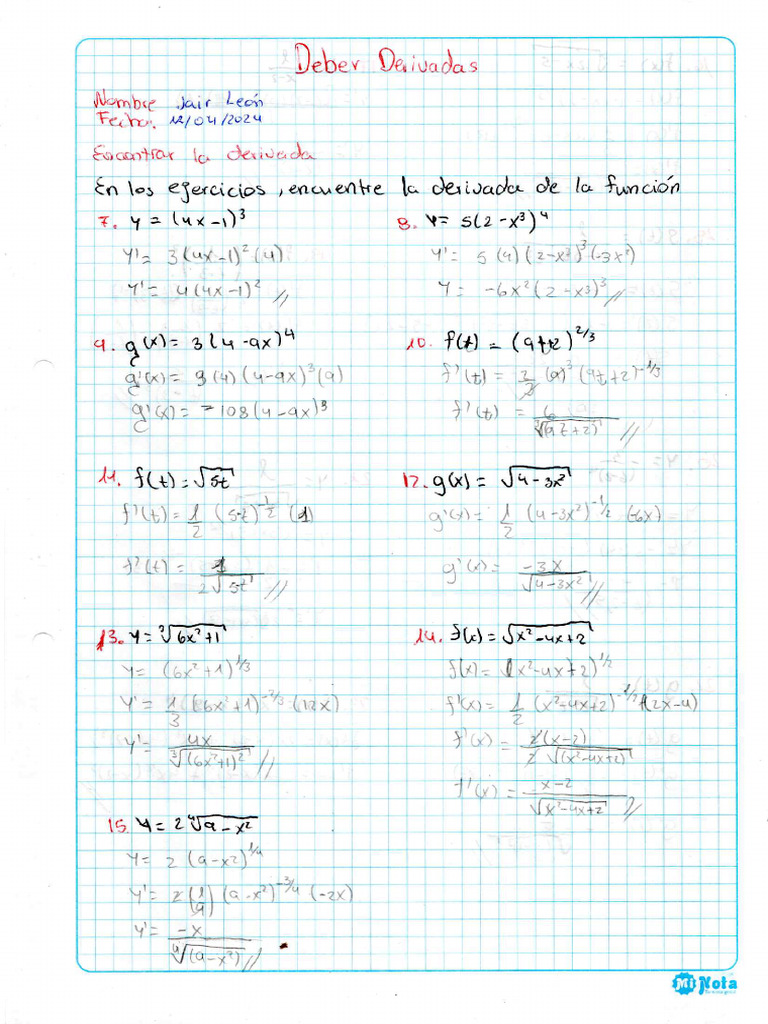 Deber Derivadas
Nombre Jair León
Fecha: 12/04/2024
Encontrar la derivada
En los ejercicios, encuentre la derivada de la función
7. y = (4x-1)^3
y' = 3(4x-1)^2 (4)
y' = 4(4x-1)^2 //
8. y = 5(2-x^3)^4
y' = 5(4)(2-x^3)^3 (-3x^2)
y = -6x^2(2-x^3)^3 //
9. g(x) = 3(4-9x)^4
g'(x) = 3(4)(4-9x)^3(9)
g'(x) = -108(4-9x)^3
10. f(t) = (9t+2)^2/3
f'(t) = 2/3 (9)^3 (9t+2)^-1/3
f'(t) = 6/∛(9t+2) //
11. f(t) = √5t
f'(t) = 1/2 (5t)^-1/2 (1)
f'(t) = 1/2√5t //
12. g(x) = √4-3x^2
g'(x) = 1/2 (4-3x^2)^-1/2 (-6x)
g'(x) = -3x/√4-3x^2 //
13. y = ∛6x^2+1
y = (6x^2+1)^1/3
y' = 1/3 (6x^2+1)^-2/3 (12x)
y' = 4x/∛(6x^2+1)^2 //
14. f(x) = √x^2-4x+2
f(x) = (x^2-4x+2)^1/2
f'(x) = 1/2 (x^2-4x+2)^-1/2 (2x-4)
f'(x) = 2(x-2)/2√(x^2-4x+2)
f'(x) = x-2/√x^2-4x+2 //
15. y = 2∜9-x^2
y = 2(9-x^2)^1/4
y' = 2(1/4)(9-x^2)^-3/4 (-2x)
y' = -x/∜(9-x^2) //
Mi Nota